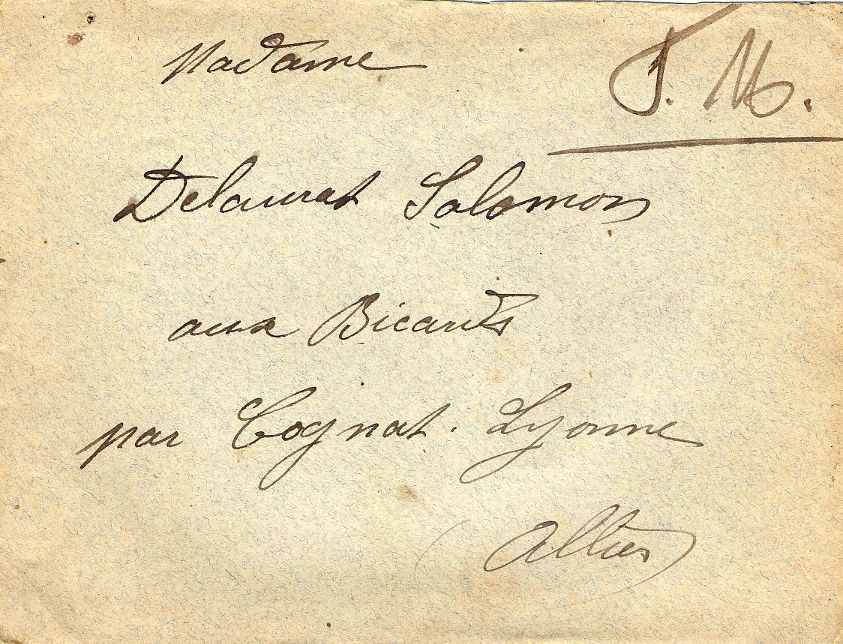 Madame
F. M.
Delaurat Salomon
aux Bicards
par Cognat. Lyonne
(Allier)